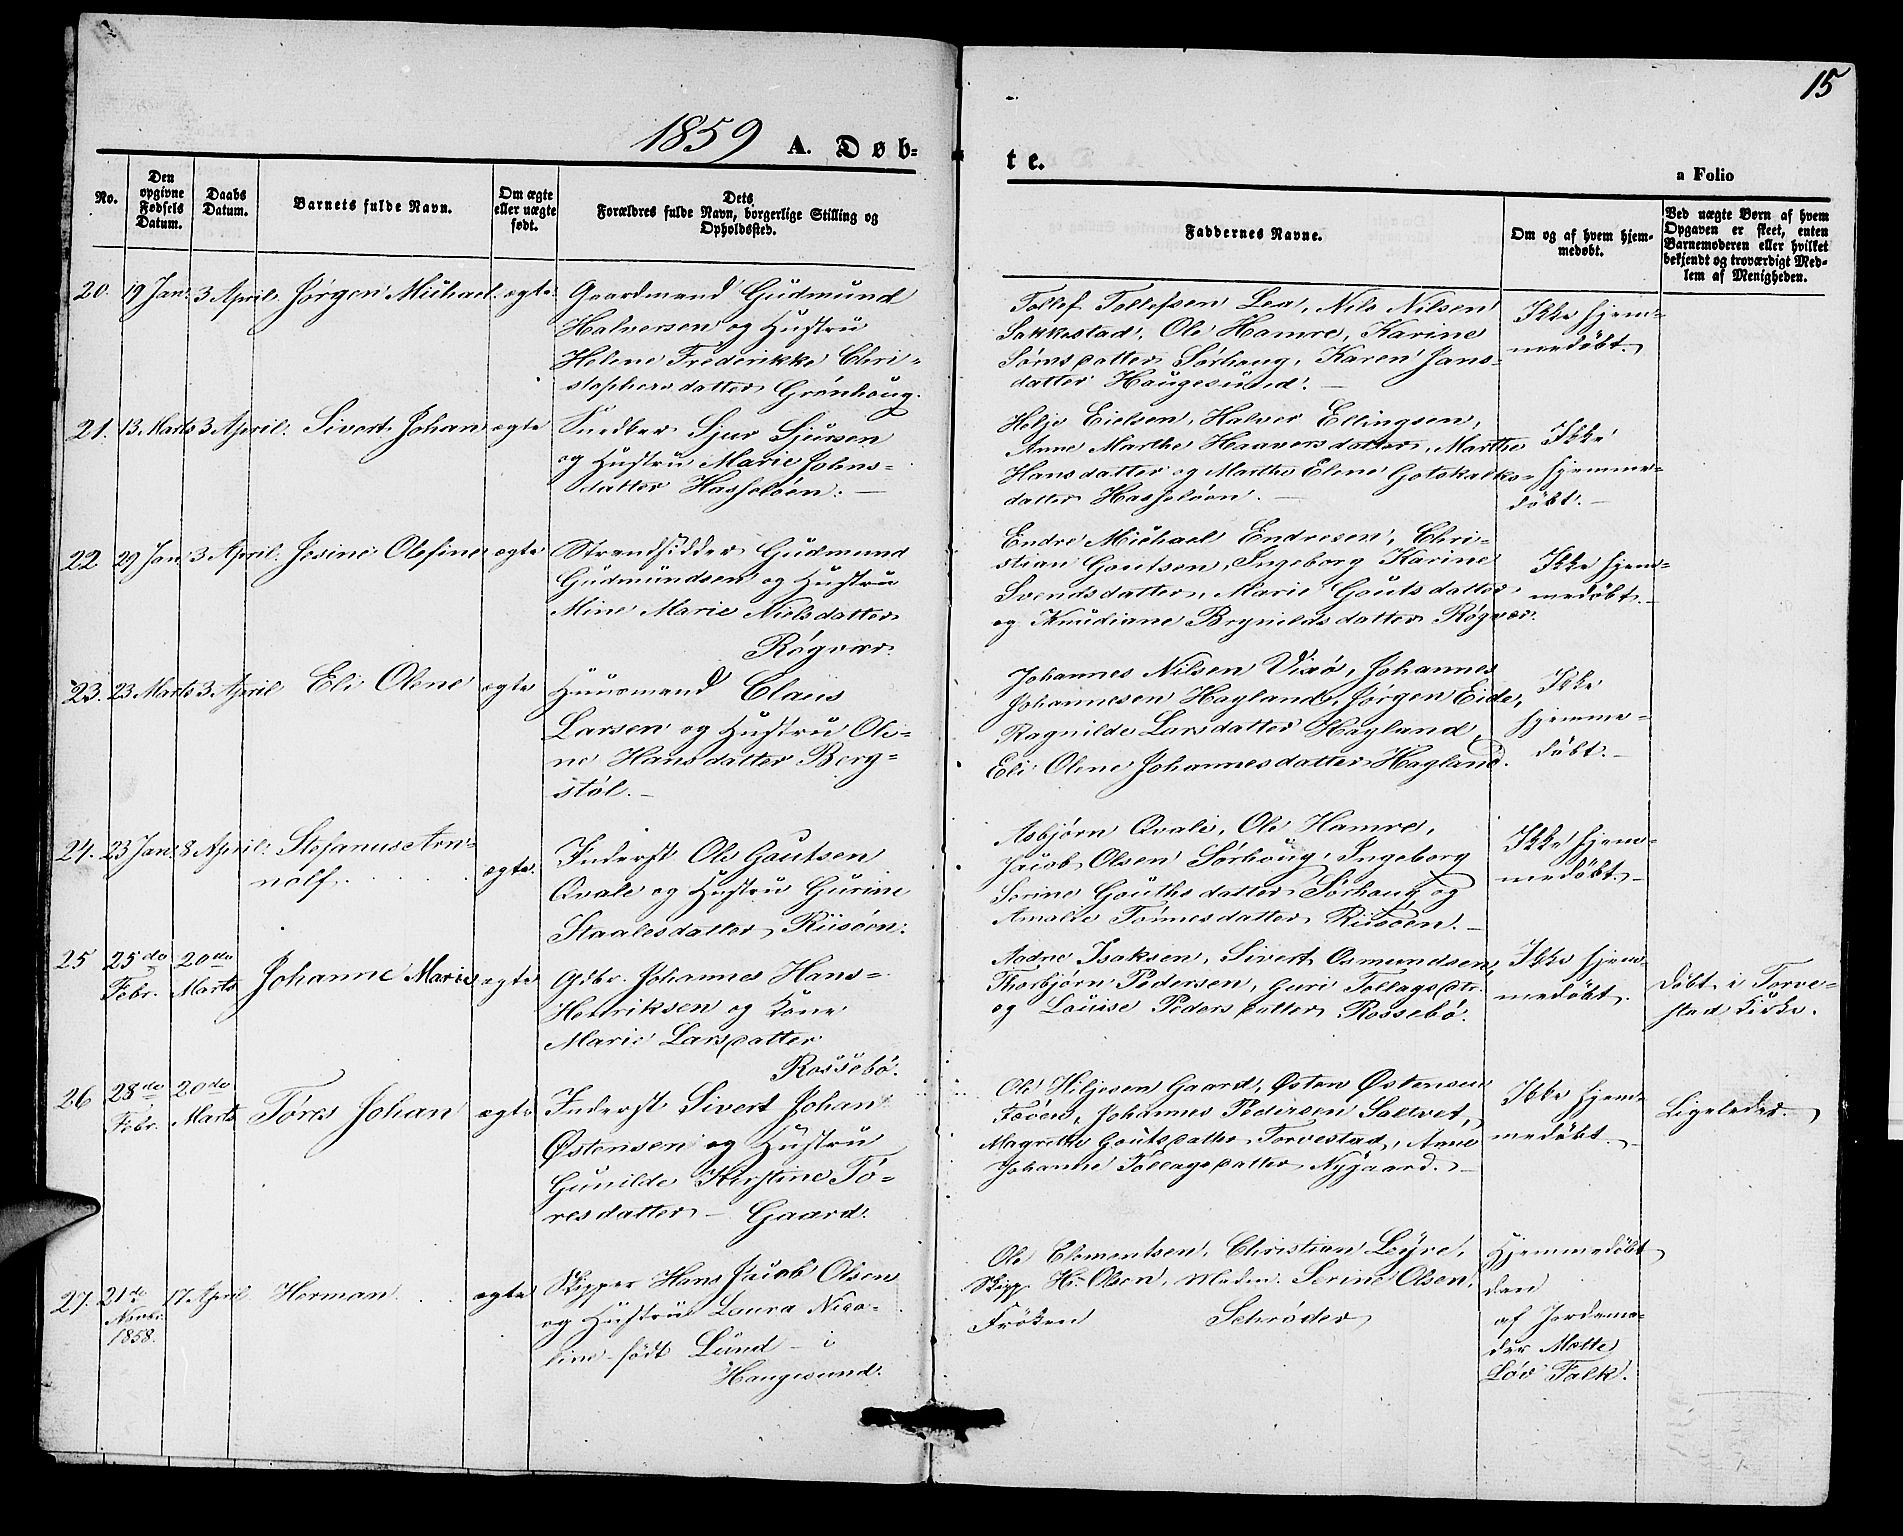 15
1859 A. Døb-
te.
a Folio
No.
Den
opgivne
Fødsels
Datum.
Daabs
Datum.
Barnets fulde Navn.
Om ægte
eller uægte
født.
Dets
Forældres fulde Navn, borgerlige Stilling og
Opholdssted.
Faddernes Navne.
Om og af hvem hjem-
medøbt.
Ved uægte Børn af hvem
Opgaven er skeet, enten
Barnemoderen eller hvilket
bekjendt og troværdigt Med-
lem af Menigheden.
20. 19 Jan. 3 April. Jørgen Michael. ægte.
Gaardmand Gudmund
Halversen og Hustru
Helene Frederikke Chri-
stophersdatter Grønhoug.
Tollef Tollefsen Lea, Nils Nilsen
Sakkestad, Ole Hamre, Karine
Sørhoug, Karen Jans-
datter Haugesund. —
Ikke hjem-
medøbt.
21. 13 Marts 3 April. Sivert Johan ægte
Sjur Sjursen
og Hustru Marie Johns-
datter Hasseløen. —
Helje Eielsen, Halver Ellingsen,
Anne Marthe Haaversdatter, Marthe
Hansdatter og Marthe Elene Gotskalks-
datter Hasseløen. —
Ikke
hjemme-
døbt. —
22. 29 Jan 3 April. Jesine Olefine ægte
Strandsidder Gudmund
Gudmundsen og Hustru
Mine Marie Nielsdatter
Røgvær.
Endre Michael Endresen, Chri-
stian Goutsen, Ingeborg Karine
Svendsdatter, Marie Goutsdatter
og Knudiane Brynildsdatter Røgvær.
Ikke hjem-
medøbt. —
23. 23 Marts 3 April Eli Olene ægte
Huusmand Claus
Larsen og Hustru Ole-
ne Hansdatter Berg-
støl. —
Johannes Nilsen Vixø, Johannes
Johannesen Hagland, Jørgen Eide,
Ragnilde Larsdatter Hagland,
Eli Olene Johannesdatter Hagland.
Ikke
hjemme-
døbt. —
24. 23 Jan. 8 April. Stefanus Arn-
nolf. ægte.
Inderst Ole Goutsen
Qvale og Hustru Gurine
Staalesdatter Riisøen.
Asbjørn Qvale, Ole Hamre,
Jacob Olsen Sørhoug, Ingeborg
Serine Gouthsdatter Sørhaug og
Amalie Tønnesdatter Riisøen. —
Ikke hjem-
medøbt —
25 25de
Febr. 20de
Marts Johanne Marie ægte
Gdbr. Johannes Hans-
Henriksen og Kone
Marie Larsdatter
Rossebø.
Aadne Isaksen, Sivert Osmundsen,
Thorbjørn Pedersen, Guri Tollagsdtr.
og Louise Pedersdatter Rossebø.
Ikke hjem-
medøbt.
Døbt i Torve-
stad Kirke.
26 28de
Febr. 20de
Marts Tøres Johan ægte
Inderst Sivert Johan
Østensen og Hustru
Gunilde Kirstine Tø-
resdatter — Gaard.
Ole Hiljesen Gaard, Østen Østensen
Føøen, Johannes Pedersen Saltvet,
Magrethe Goutsdatter Torvestad, Anne
Johanne Tollagsdatter Nygaard. —
Ikke hjem-
medøbt. —
Ligeledes.
27. 21de
Novbr.
1858. 17 April Herman ægte
Skipper Hans Jacob Olsen
og Hustru Laura Nico-
line født Lund — i
Haugesund.
Ole Clementsen, Christian Leyre,
Skipp. H. Olsen, Madm. Serine Olsen,
Frøken Schrøder
Hjemmedøbt
den
af Jordemo-
der Mette
Løv Falk.